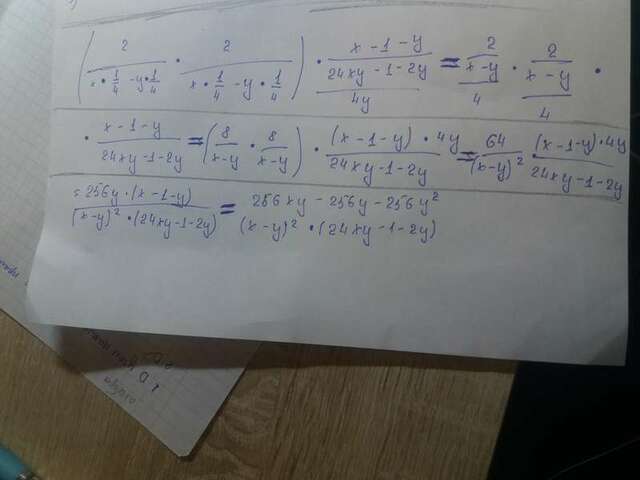 (2 / (x · 1/4 - y · 1/4) · 2 / (x · 1/4 - y · 1/4)) · (x - 1 - y) / ((24xy - 1 - 2y) / 4y) = 2 / ((x - y) / 4) · 2 / ((x - y) / 4) ·
· (x - 1 - y) / (24xy - 1 - 2y) = (8 / (x - y) · 8 / (x - y)) · (x - 1 - y) · 4y / (24xy - 1 - 2y) = 64 / (x - y)² · (x - 1 - y) · 4y / (24xy - 1 - 2y)
= 256y · (x - 1 - y) / ((x - y)² · (24xy - 1 - 2y)) = (256xy - 256y - 256y²) / ((x - y)² · (24xy - 1 - 2y))